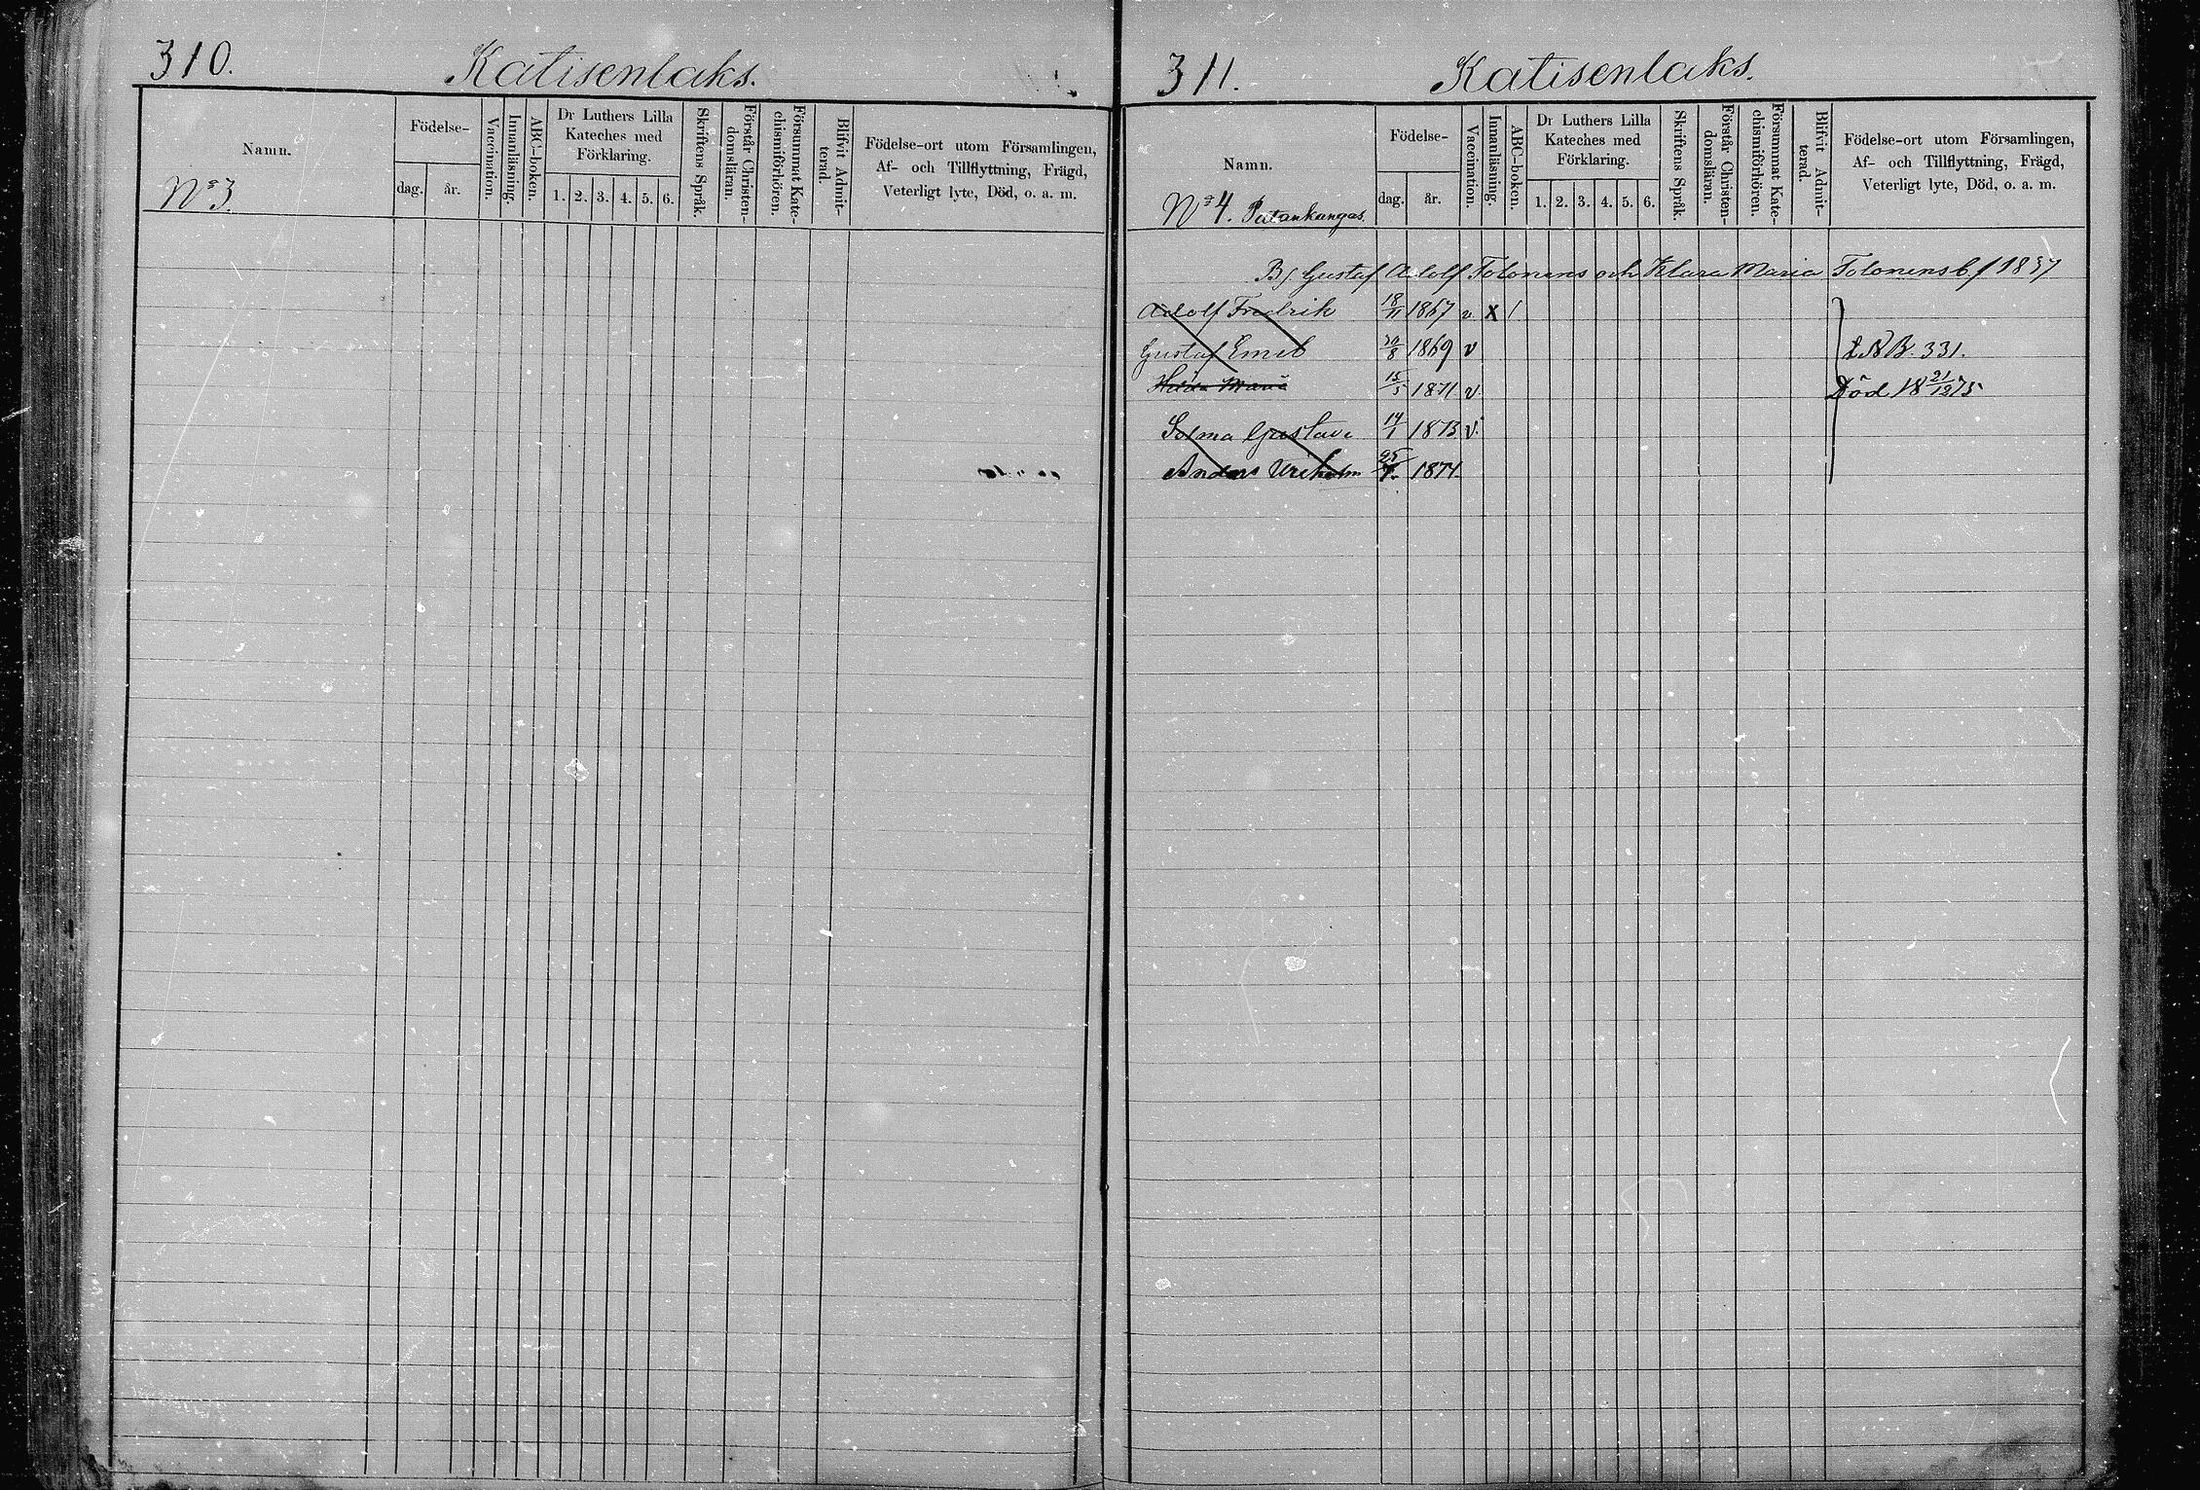 310.
Katisenlaks.
Namn.
Födelse-
dag.
år.
Vaccination.
Innanläsning.
ABC-boken.
Dr Luthers Lilla
Kateches med
Förklaring.
1. 2. 3. 4. 5. 6.
Skriftens Språk.
Förstår Christen-
domsläran.
Försummat Kate-
chismiförhören.
Blifvit Admit-
terad.
Födelse-ort utom Församlingen,
Af- och Tillflyttning, Frägd,
Veterligt lyte, Död, o. a. m.
No 3.
311.
Katisenlaks.
Namn.
Födelse-
dag.
år.
Vaccination.
Innanläsning.
ABC-boken.
Dr Luthers Lilla
Kateches med
Förklaring.
1. 2. 3. 4. 5. 6.
Skriftens Språk.
Förstår Christen-
domsläran.
Försummat Kate-
chismiförhören.
Blifvit Admit-
terad.
Födelse-ort utom Församlingen,
Af- och Tillflyttning, Frägd,
Veterligt lyte, Död, o. a. m.
No 4. Putankangas.
Gustaf Adolf Tolonens och Klara Maria Tolonens
Adolf Fredrik 18/11 1867 v x /
Gustaf Emil 1869 v 331.
Hilda Maria 15/5 1871 v. Död 18 21/12 75
Selma Gustava 1873 v.
Anders Vilhelm 1874.